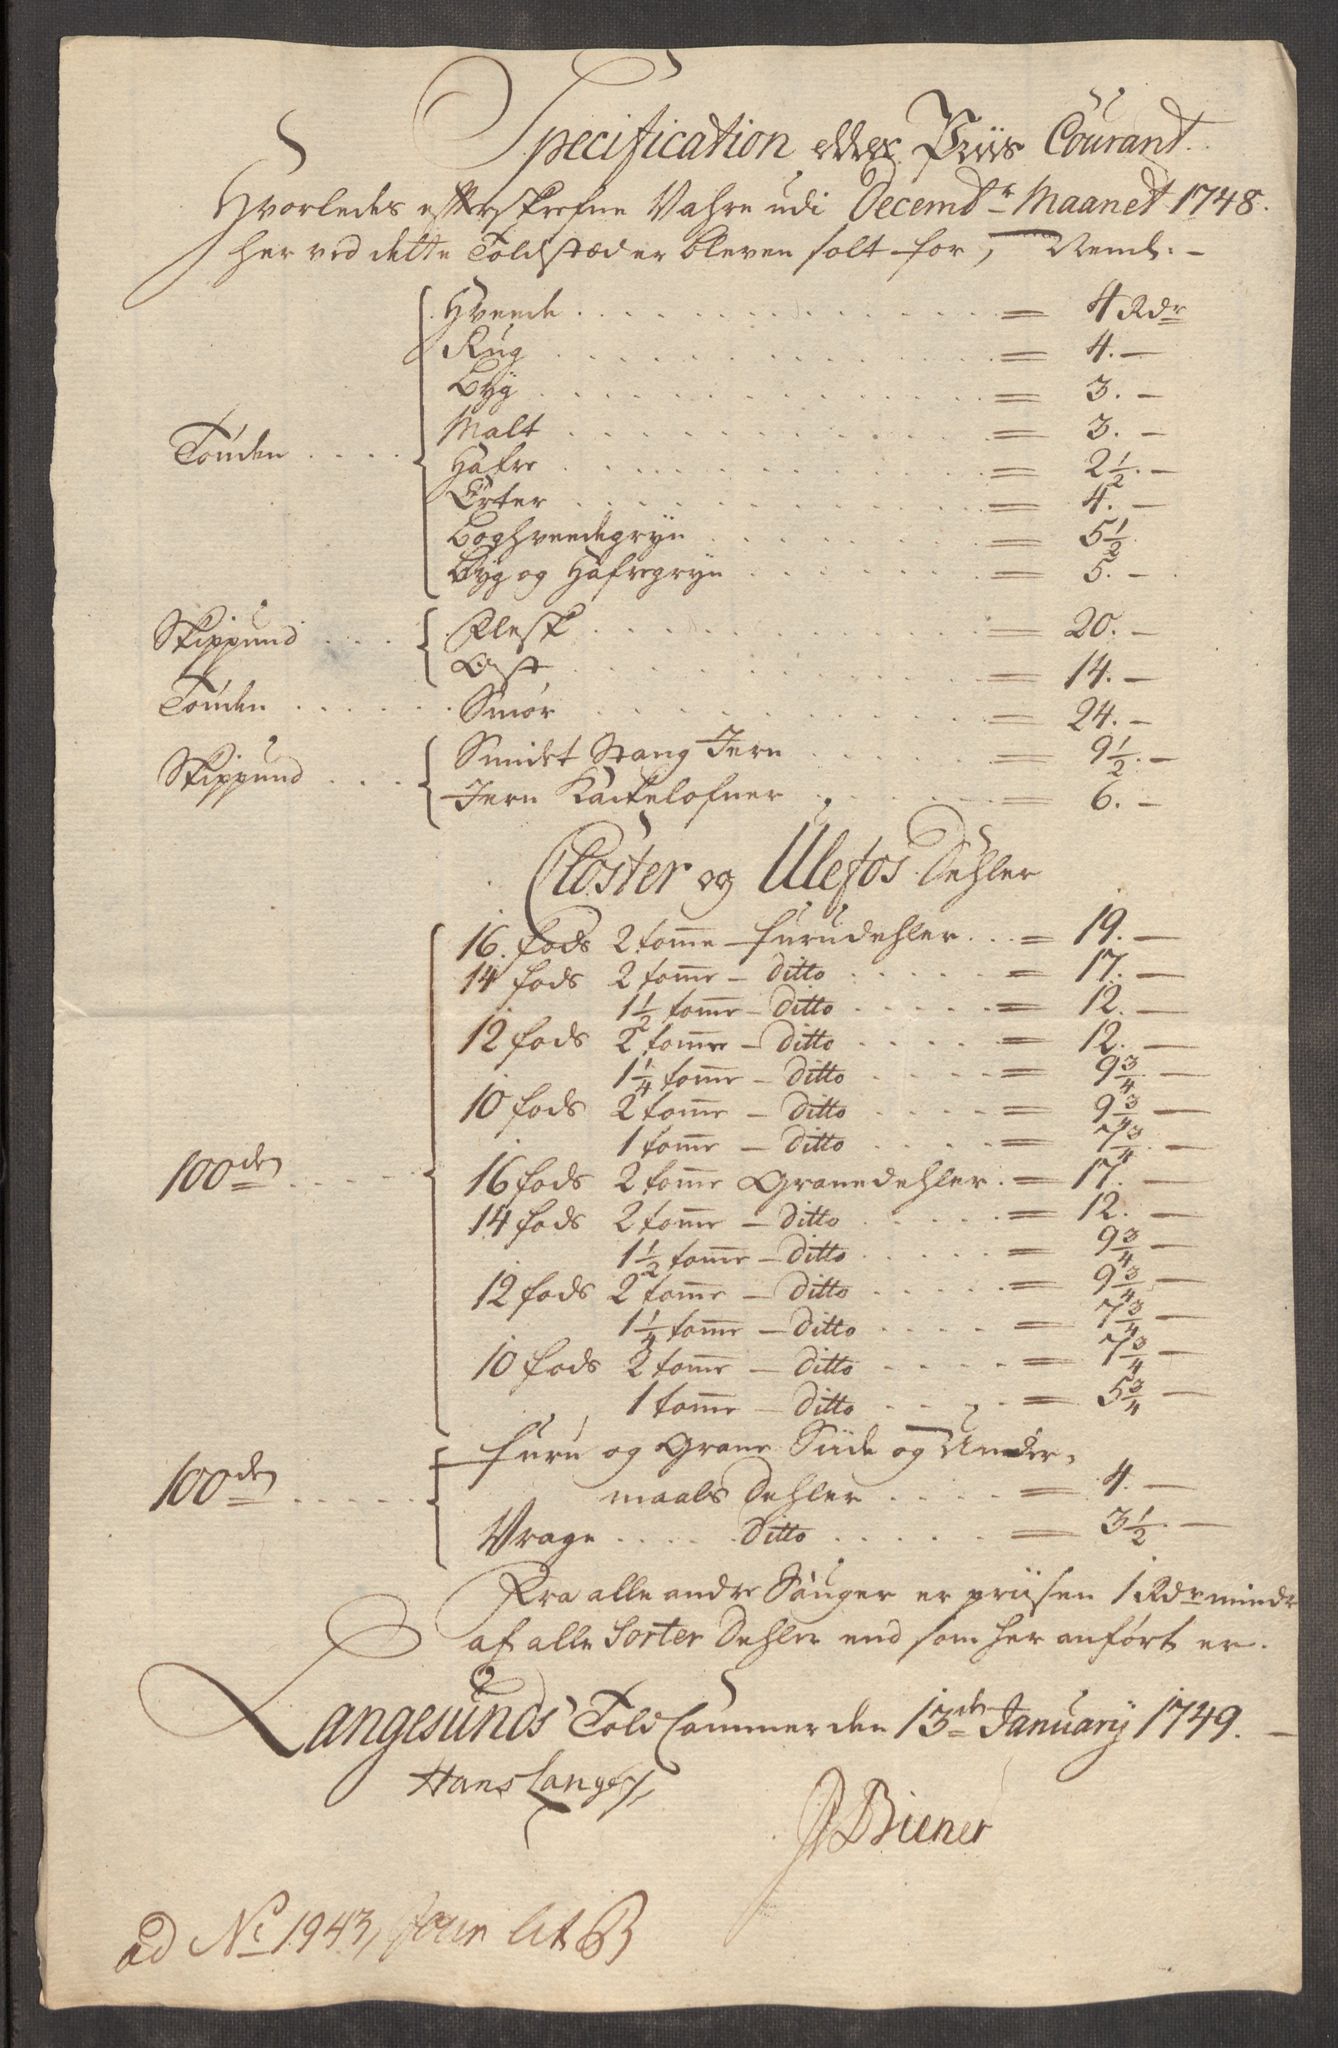 Specification eller Priis Courant
Hvorledes efterskrefne Vahre udi Decembr Maanet 1748.
her ved dette Toldstæd er bleven solt for, Neml. -
Hveede . . . . = 4 Rdr
Rug . . . . = 4. -
Byg . . . . = 3. -
Malt . . . . = 3. -
Tönden . . . . Hafre . . . . = 2 1/2. -
Erter . . . . = 4. -
Boghveedegryn . . . . = 5 1/2
Byg og Hafregryn . . . . = 5. -
Skippund . . . Flesk . . . . = 20. -
Ost . . . . = 14. -
Tönden . . . . . Smör . . . . = 24. -
Smidet Stang Jern . . . . = 9 1/2. -
Skippund . . . Jern Kackelofner . . . . = 6. -
Closter og Ulefos Dehler
16. fods 2 tom̄e furudehler . . = 19. -
14 fods 2 tom̄e - ditto . . . . = 17. -
1 1/2 tom̄e - ditto . . . . = 12. -
12 fods 2 tom̄e - ditto . . . . = 12. -
1 1/4 tom̄e - ditto . . . . = 9 3/4 -
10 fods 2 tom̄e - ditto . . . . = 9 3/4 -
1 tom̄e - ditto . . . . = 7 3/4 -
100de . . . . 16 fods 2 tom̄e Granedehler . = 17. -
14 fods 2 tom̄e - ditto . . . . = 12. -
1 1/2 tom̄e - ditto . . . . = 9 3/4 -
12 fods 2 tom̄e - ditto . . . . = 9 3/4 -
1 1/4 tom̄e - ditto . . . . = 7 3/4 -
10 fods 2 tom̄e - ditto . . . . = 7 3/4 -
1 tom̄e - ditto . . . . = 5 3/4 -
furu og Grane Siide og Under-
100de . . . . . maals Dehler . . . . = 4. -
Vrage . . . . Ditto . . . . = 3 1/2. -
Fra alle andre Sauger er priisen 1 Rdr mindr
af alle Sorter Dehler end som her anfört er.
Langesunds Told Cammer den 13de January 1749. -
Hans Lange
Biener
ad No 1943, Jour lit B